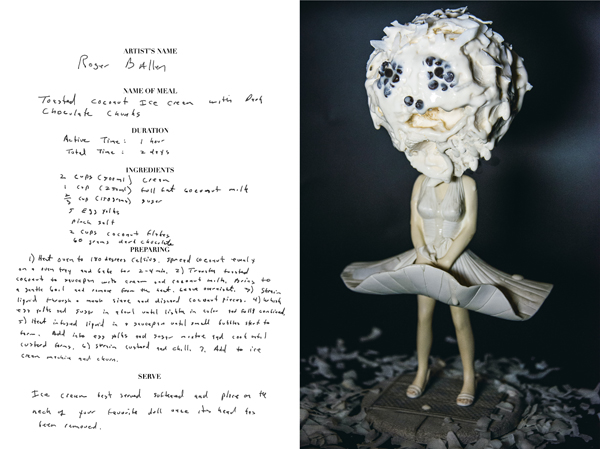 ARTIST'S NAME
Roger Ballen
NAME OF MEAL
Toasted Coconut Ice cream with Dark
Chocolate Chunks
DURATION
Active Time: 1 hour
Total Time: 2 days
INGREDIENTS
2 cups (500ml) cream
1 cup (250ml) full fat coconut milk
cup sugar
5 Egg yolks
Pinch salt
2 cups coconut flakes
60 grams dark chocolate
PREPARING
1) Heat oven to 180 degrees Celcius, spread coconut evenly
on a oven tray and bake for 2-4 min. 2) Transfer toasted
coconut to saucepan with cream and coconut milk, bring to
a gentle boil and remove from the heat. Leave overnight. 3) Strain
liquid through a mesh sieve and discard coconut pieces. 4) Whisk
egg yolks and sugar in a bowl until lighter in color and fully combined.
5) Heat infused liquid in a saucepan until small bubbles start to
form. Add into egg yolks and sugar mixture and cook until
custard forms. 6) Strain custard and chill. 7. Add to ice
cream machine and churn.
SERVE
Ice cream best served softened and place on the
neck of your favorite doll once its head has
been removed.